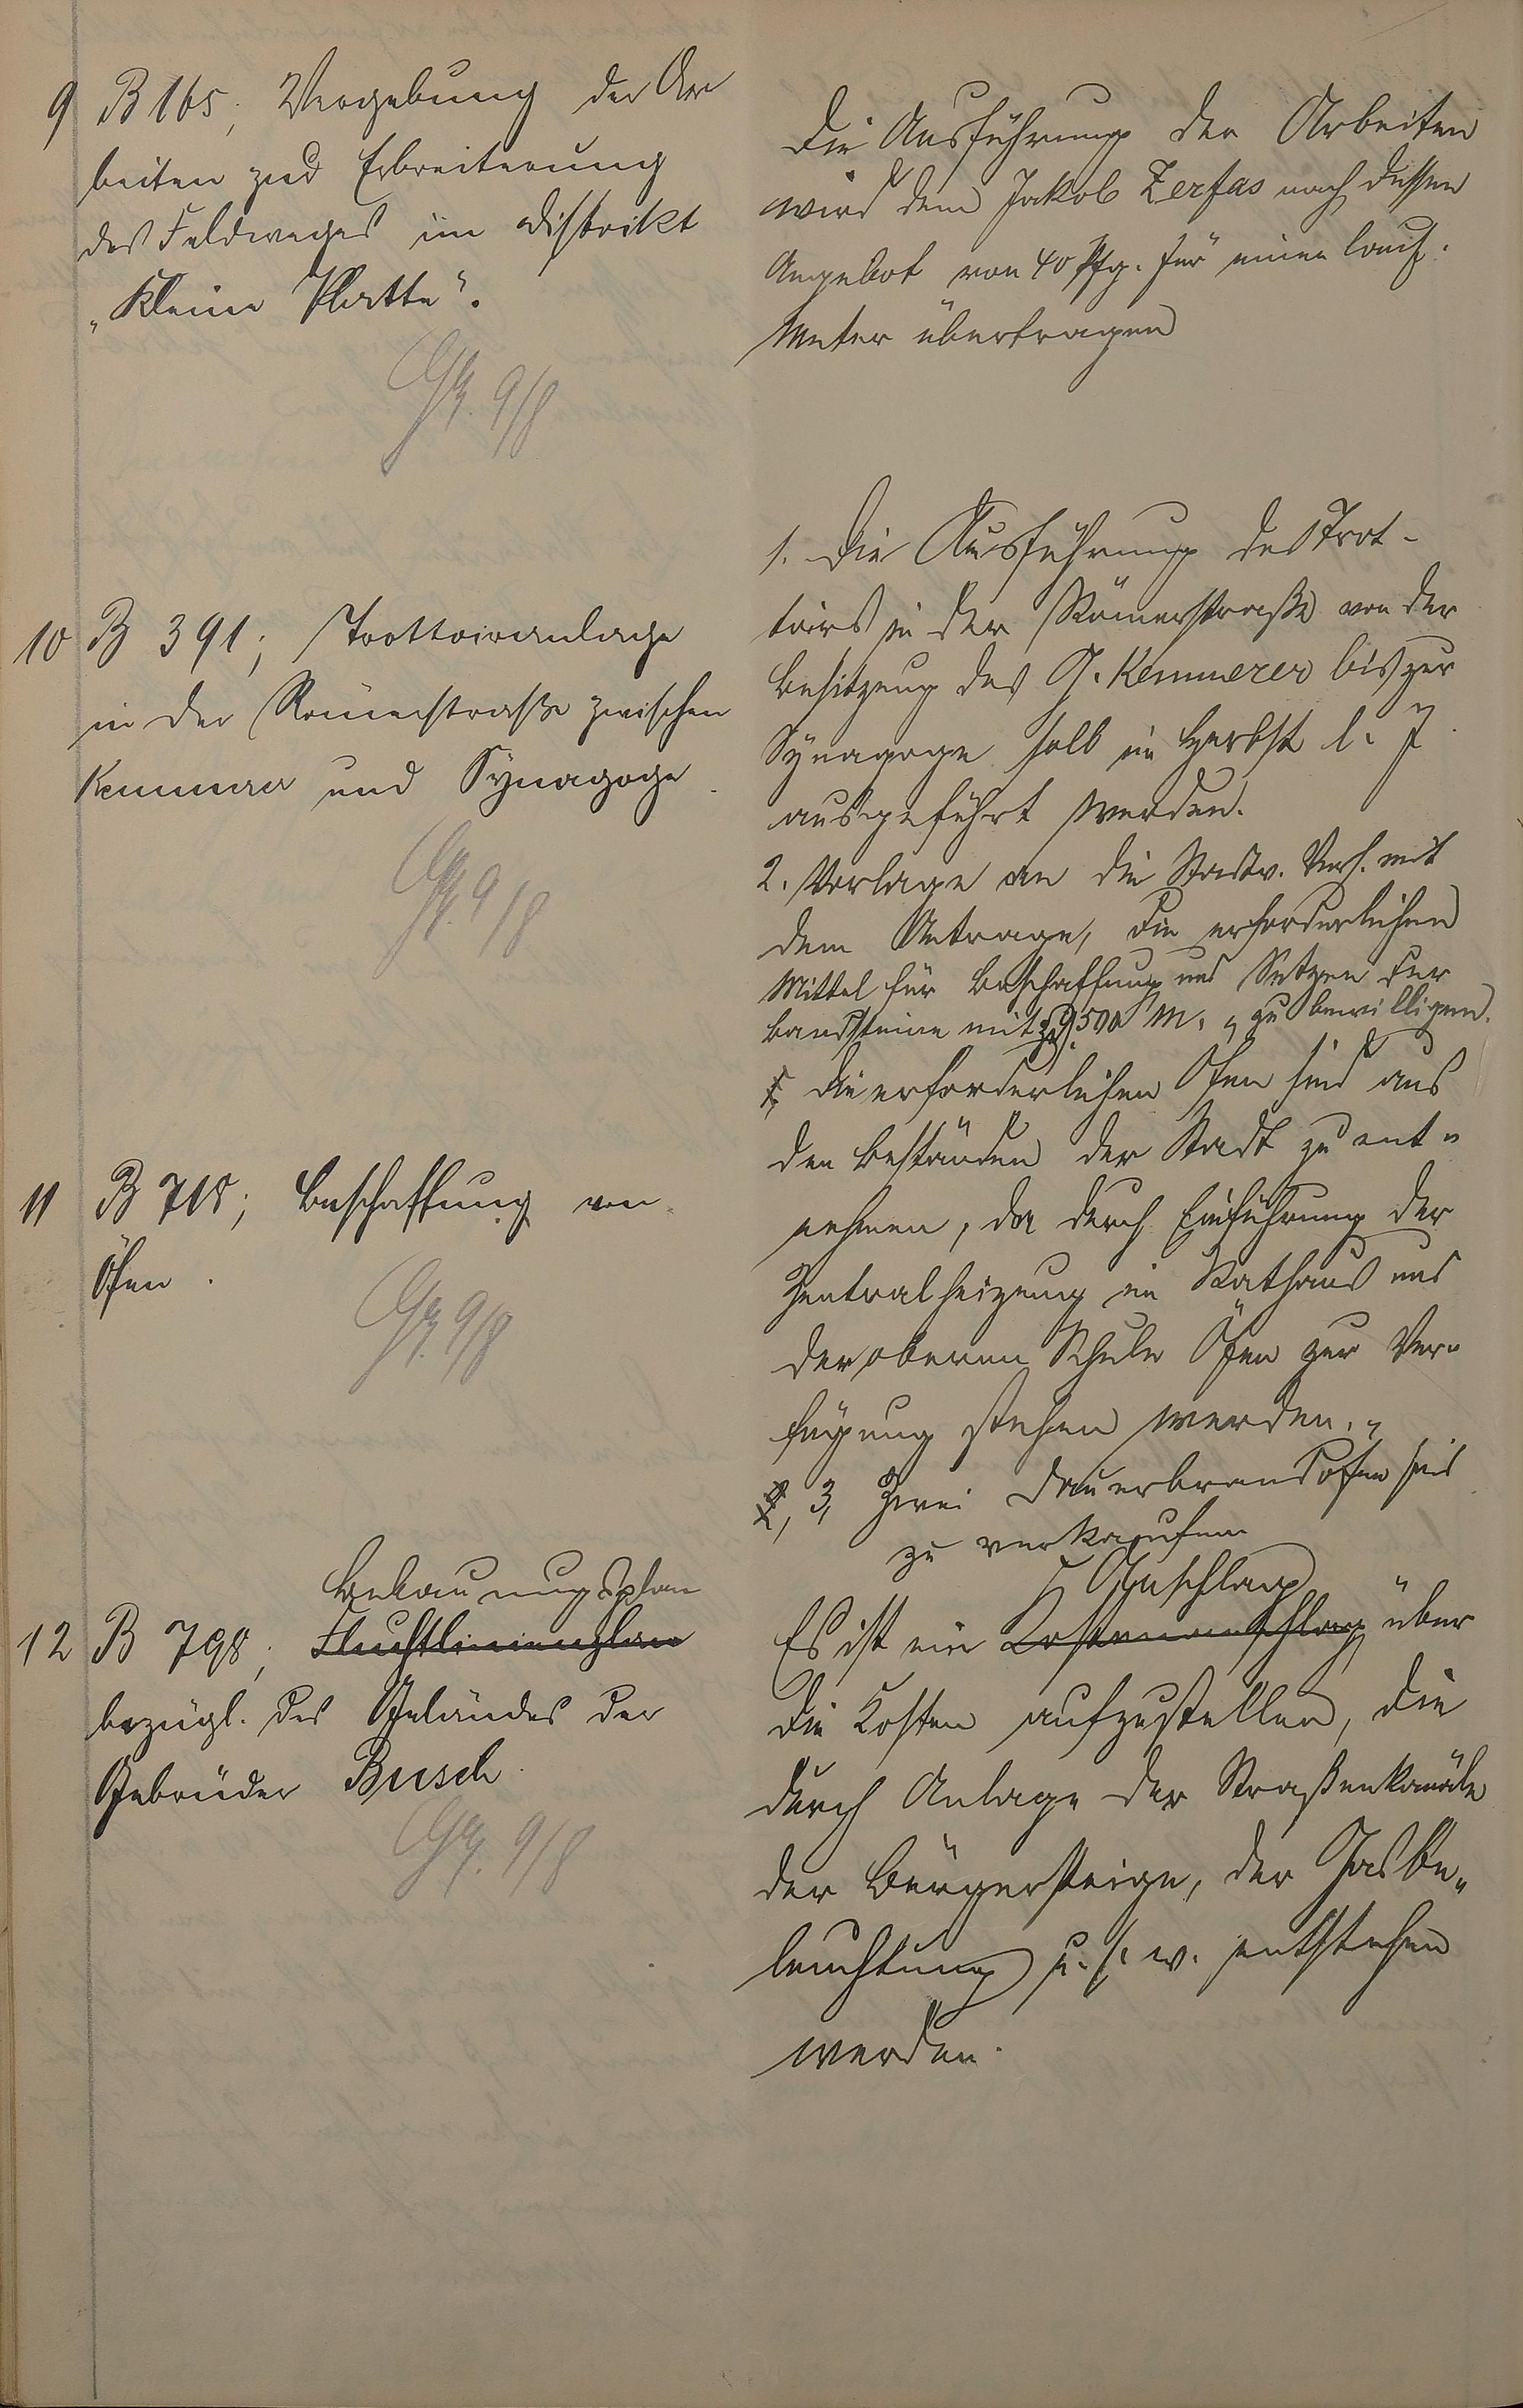 9 B 165, Vergebung der Ar
beiten zur Erbreiterung
des Feldweges im Distrikt
„Kleine Platte".
9/8
Die Ausführung der Arbeiten
wird dem Jakob Zerfas nach dessen
Angebot von 40 Pfg. für einen lauf.
Meter übertragen
10 B 391; Trottoiranlage
in der Römerstraße zwischen
Kemmerer und Synagoge.
9/8
1. Die Ausführung des Trot-
toirs in der Römerstraße von der
Besitzung des J. Kemmerer bis zur
Synagoge soll im Herbst l. J.
ausgeführt werden.
2. Vorlage an die Stadtv. Vers. mit
dem Antrage, die erforderlichen
Mittel für Beschaffung und Setzen der
Bandsteine mit 500 M. zu bewilligen.
11 B 718; Beschaffung von
Öfen.
9/8
Die erforderlichen Öfen sind aus
den Beständen der Stadt zu ent-
nehmen, da durch Einführung der
Zentralheizung im Rathaus und
der oberen Schule Öfen zur Ver-
fügung stehen werden.
2, 3, Zwei Dauerbrandöfen sind
zu verkaufen
12 B 798, Fluchtlinienplan
Bebauungsplan
bezügl. des Geländes der
Gebrüder Busch.
9/8
Es ist ein Kostenanschlag über
die Kosten aufzustellen, die
durch Anlage der Straßenkanäle
der Bürgersteige, der Gasbe-
leuchtung u. s. w. entstehen
werden.